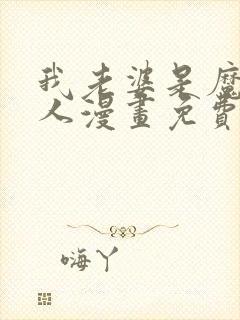 我老婆是魔
人漫畫免費
嗨丫